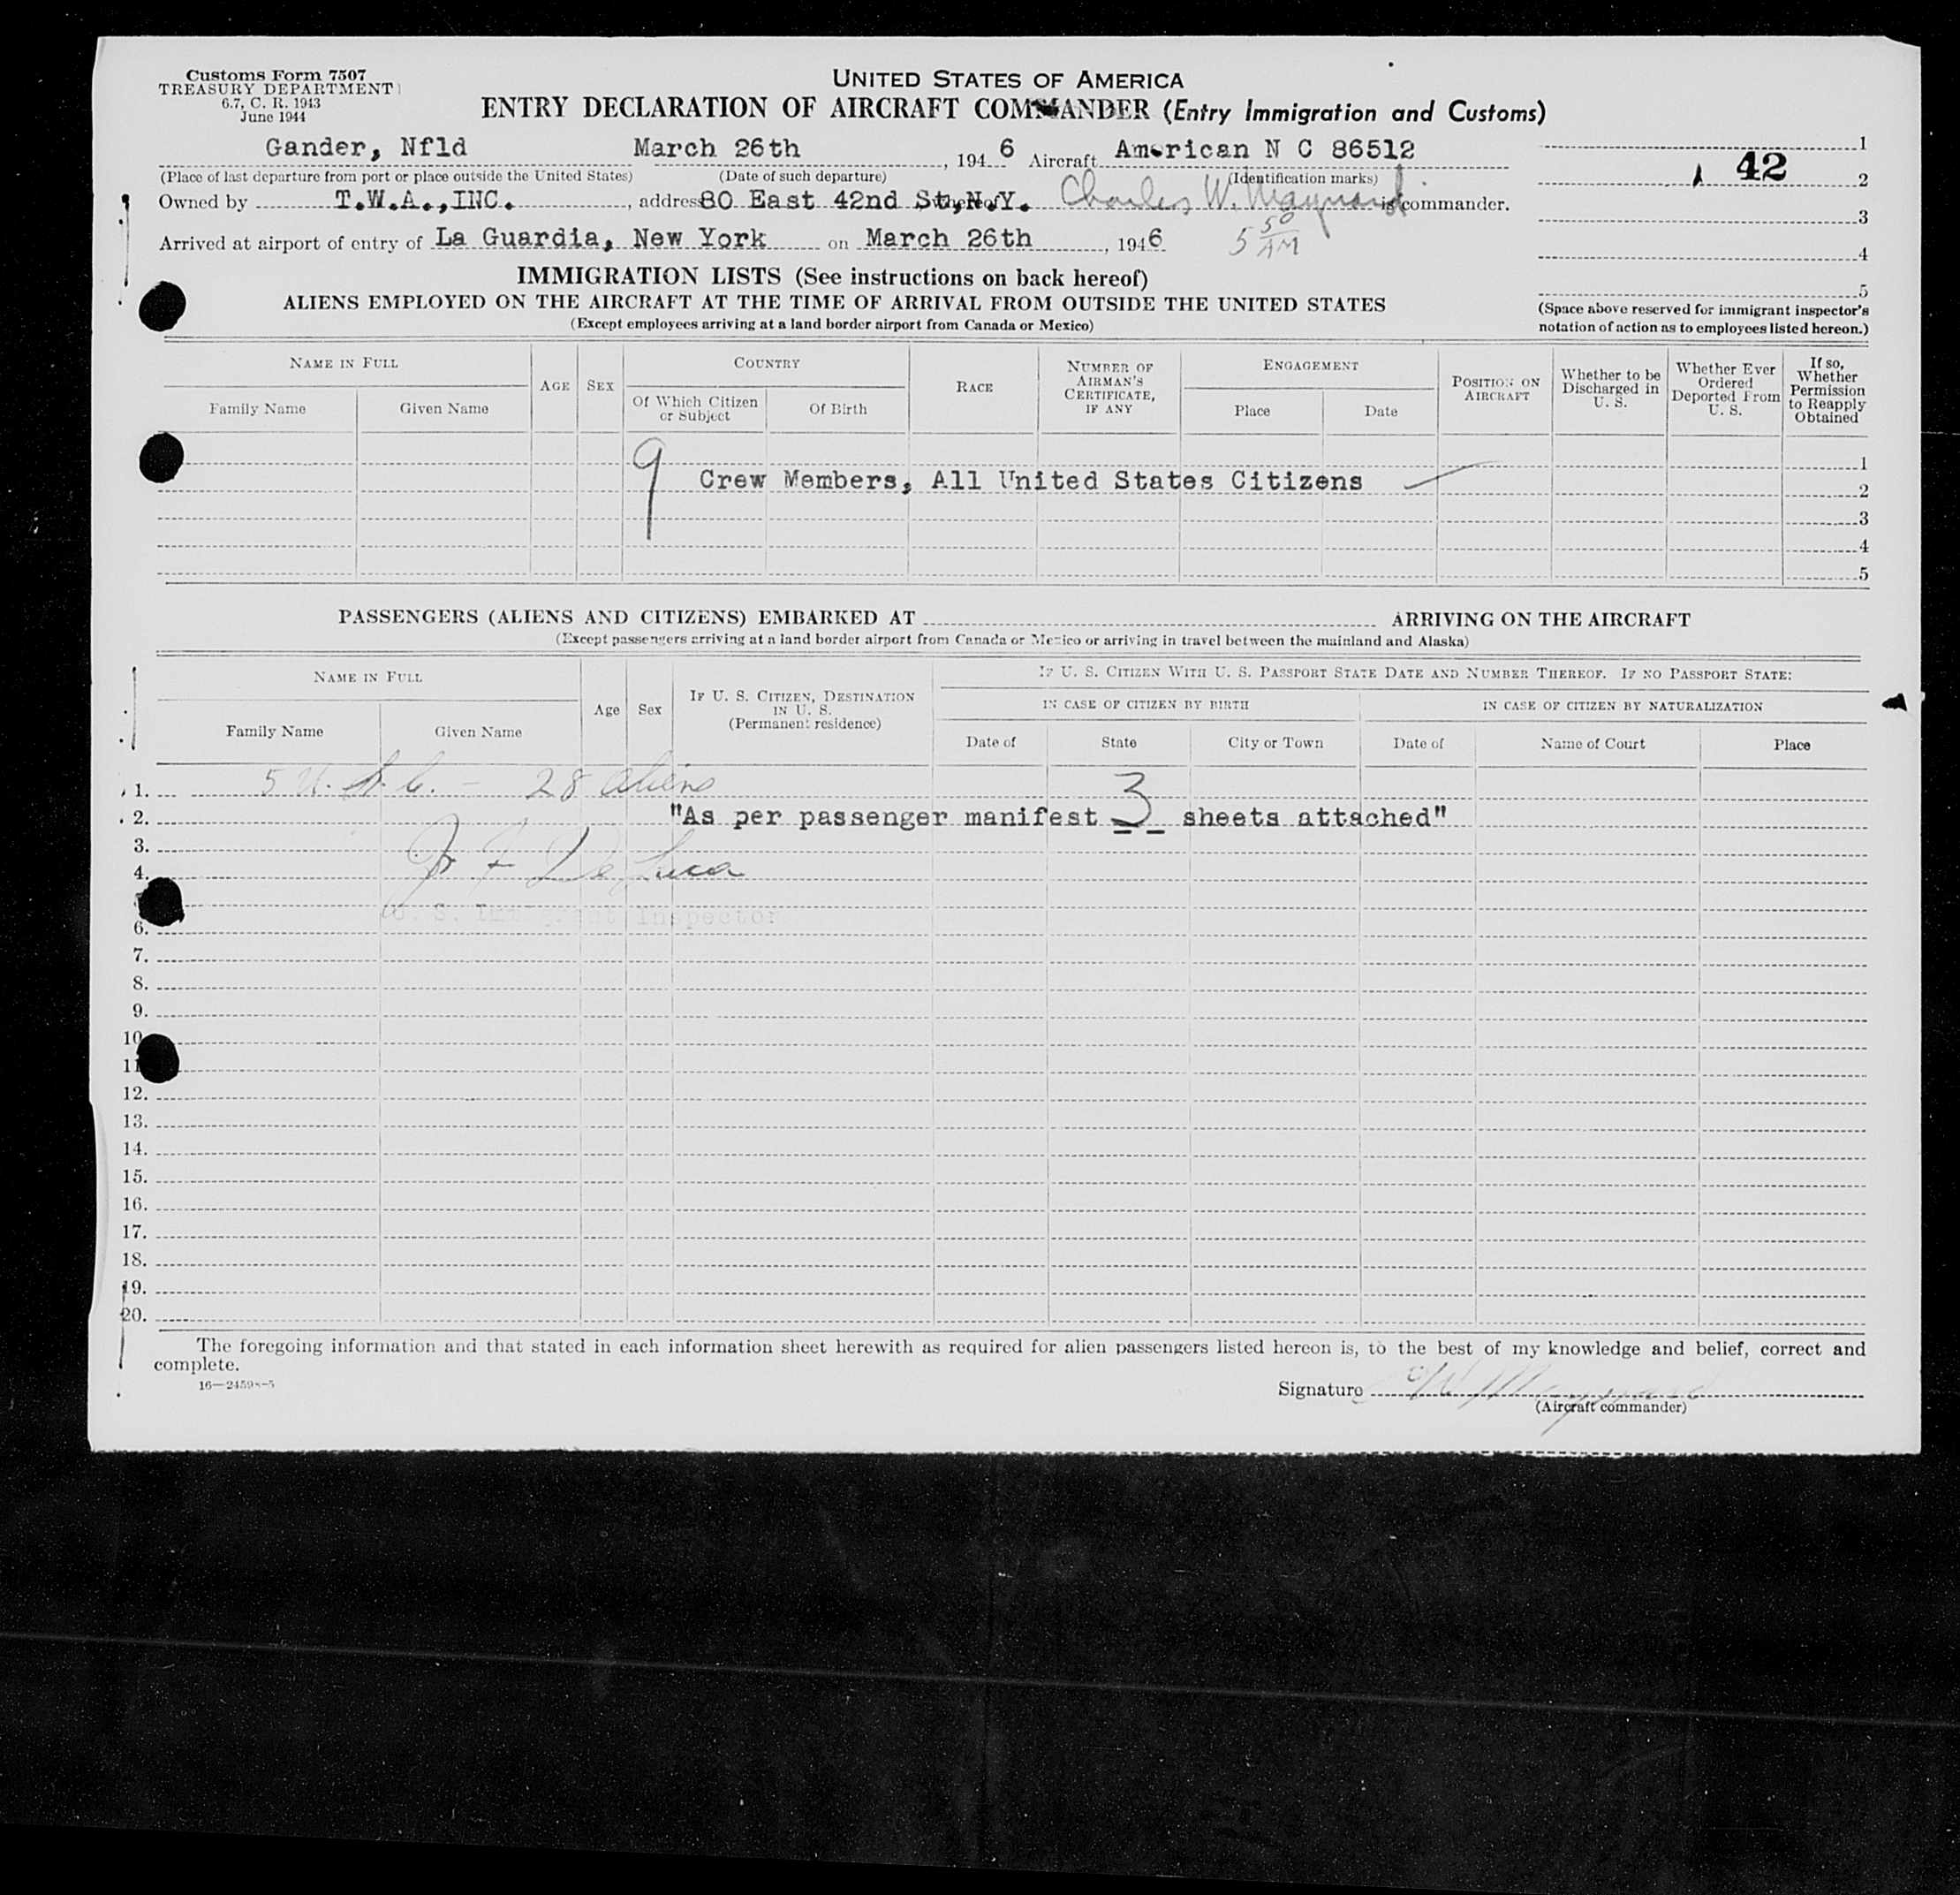 Customs Form 7507
TREASURY DEPARTMENT
6.7, C. R. 1943
June 1944
UNITED STATES OF AMERICA
ENTRY DECLARATION OF AIRCRAFT COMMANDER (Entry Immigration and Customs)
Gander, Nfld March 26th, 1946 Aircraft American N C 86512
(Place of last departure from port or place outside the United States) (Date of such departure) (Identification marks)
Owned by T.W.A.,INC., address 80 East 42nd St,N.Y. whereof Charles W. Maynard is commander.
Arrived at airport of entry of La Guardia, New York on March 26th, 1946 5 50 AM
1
42 2
3
4
5
(Space above reserved for immigrant inspector's
notation of action as to employees listed hereon.)
IMMIGRATION LISTS (See instructions on back hereof)
ALIENS EMPLOYED ON THE AIRCRAFT AT THE TIME OF ARRIVAL FROM OUTSIDE THE UNITED STATES
(Except employees arriving at a land border airport from Canada or Mexico)
NAME IN FULL
Family Name Given Name
AGE SEX
COUNTRY
Of Which Citizen or Subject Of Birth
RACE
NUMBER OF AIRMAN'S CERTIFICATE, IF ANY
ENGAGEMENT
Place Date
POSITION ON AIRCRAFT
Whether to be Discharged in U. S.
Whether Ever Ordered Deported From U. S.
If so, Whether Permission to Reapply Obtained
1
9 Crew Members, All United States Citizens 2
3
4
5
PASSENGERS (ALIENS AND CITIZENS) EMBARKED AT ARRIVING ON THE AIRCRAFT
(Except passengers arriving at a land border airport from Canada or Mexico or arriving in travel between the mainland and Alaska)
NAME IN FULL
Family Name Given Name
Age Sex
IF U. S. CITIZEN, DESTINATION IN U. S.
(Permanent residence)
IF U. S. CITIZEN WITH U. S. PASSPORT STATE DATE AND NUMBER THEREOF. IF NO PASSPORT STATE:
IN CASE OF CITIZEN BY BIRTH IN CASE OF CITIZEN BY NATURALIZATION
Date of State City or Town Date of Name of Court Place
1. 5 U. S. C. - 28 aliens
2. "As per passenger manifest 3 sheets attached"
3.
4. De Luca
U. S. Immigrant Inspector
6.
7.
8.
9.
10
11
12.
13.
14.
15.
16.
17.
18.
19.
20.
The foregoing information and that stated in each information sheet herewith as required for alien passengers listed hereon is, to the best of my knowledge and belief, correct and
complete.
16—24598-5
Signature C W Maynard
(Aircraft commander)